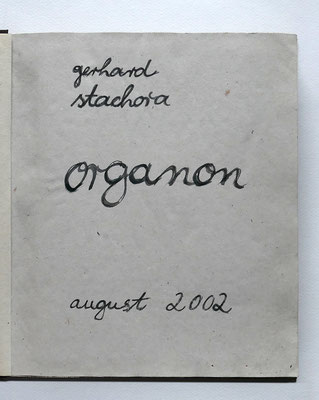 gerhard
stachora
organon
august 2002